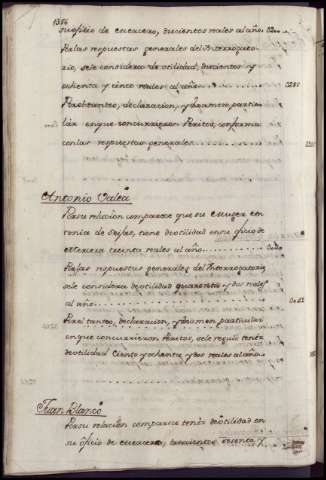 1386
su ofizio de cucacero, ducientos reales al año. C200
Por las respuestas generales del Interrogato-
rio, se le considera de utilidad, ducientos y
ochenta y cinco reales al año C285
Por otro tanto, declarazion, y examen particu-
lar en que concurrieron Peritos, conforma
con las respuestas generales
Antonio Valea
Por su relacion comparece que su Muger An-
tonia de Seijas, tiene de utilidad en su oficio de
estexera treinta reales al año
Por las respuestas generales del Interrogatorio
se le considera de utilidad quarenta y dos reales
al año
Por otro tanto, declaracion, y examen particular
en que concurrieron Peritos, se le reguló tener
de utilidad ciento y ochenta y dos reales al año
Juan Blanco
Por su relacion comparece tener de utilidad en
su oficio de cucacero, ducientos